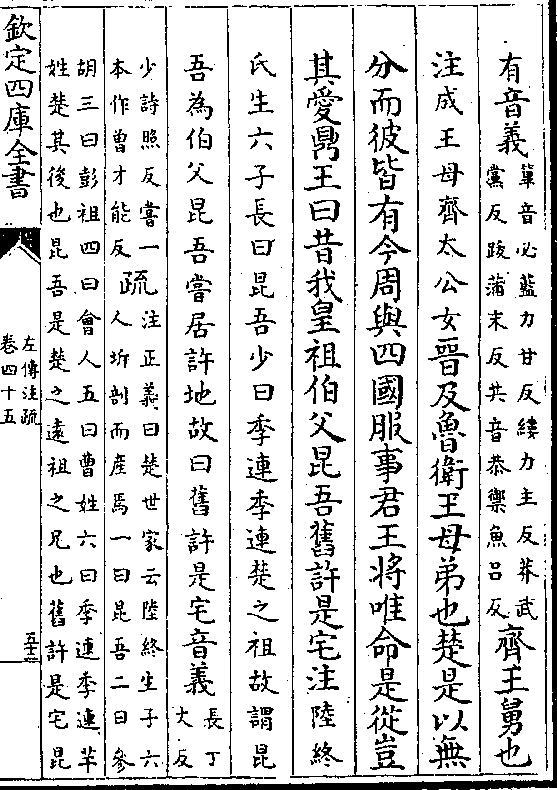 有音義
篳音必藍力甘反縷力主反莽武
黨反跋蒲末反共音恭禦魚呂反
齊王舅也
注成王母齊太公女晉及魯衛王母弟也楚是以無
分而彼皆有今周與四國服事君王將唯命是從豈
其愛鼎王曰昔我皇祖伯父昆吾舊許是宅注陸終
氏生六子長曰昆吾少曰季連季連楚之祖故謂昆
吾為伯父昆吾嘗居許地故曰舊許是宅音義
長丁
丈反
少詩照反嘗一
本作曾才能反
疏
注正義曰楚世家云陸終生子六
人坼剖而產焉一曰昆吾二曰參
胡三曰彭祖四曰會人五曰曹姓六曰季連季連羋
姓楚其後也昆吾是楚之遠祖之兄也舊許是宅昆
欽定四庫全書
左傳注疏
卷四十五